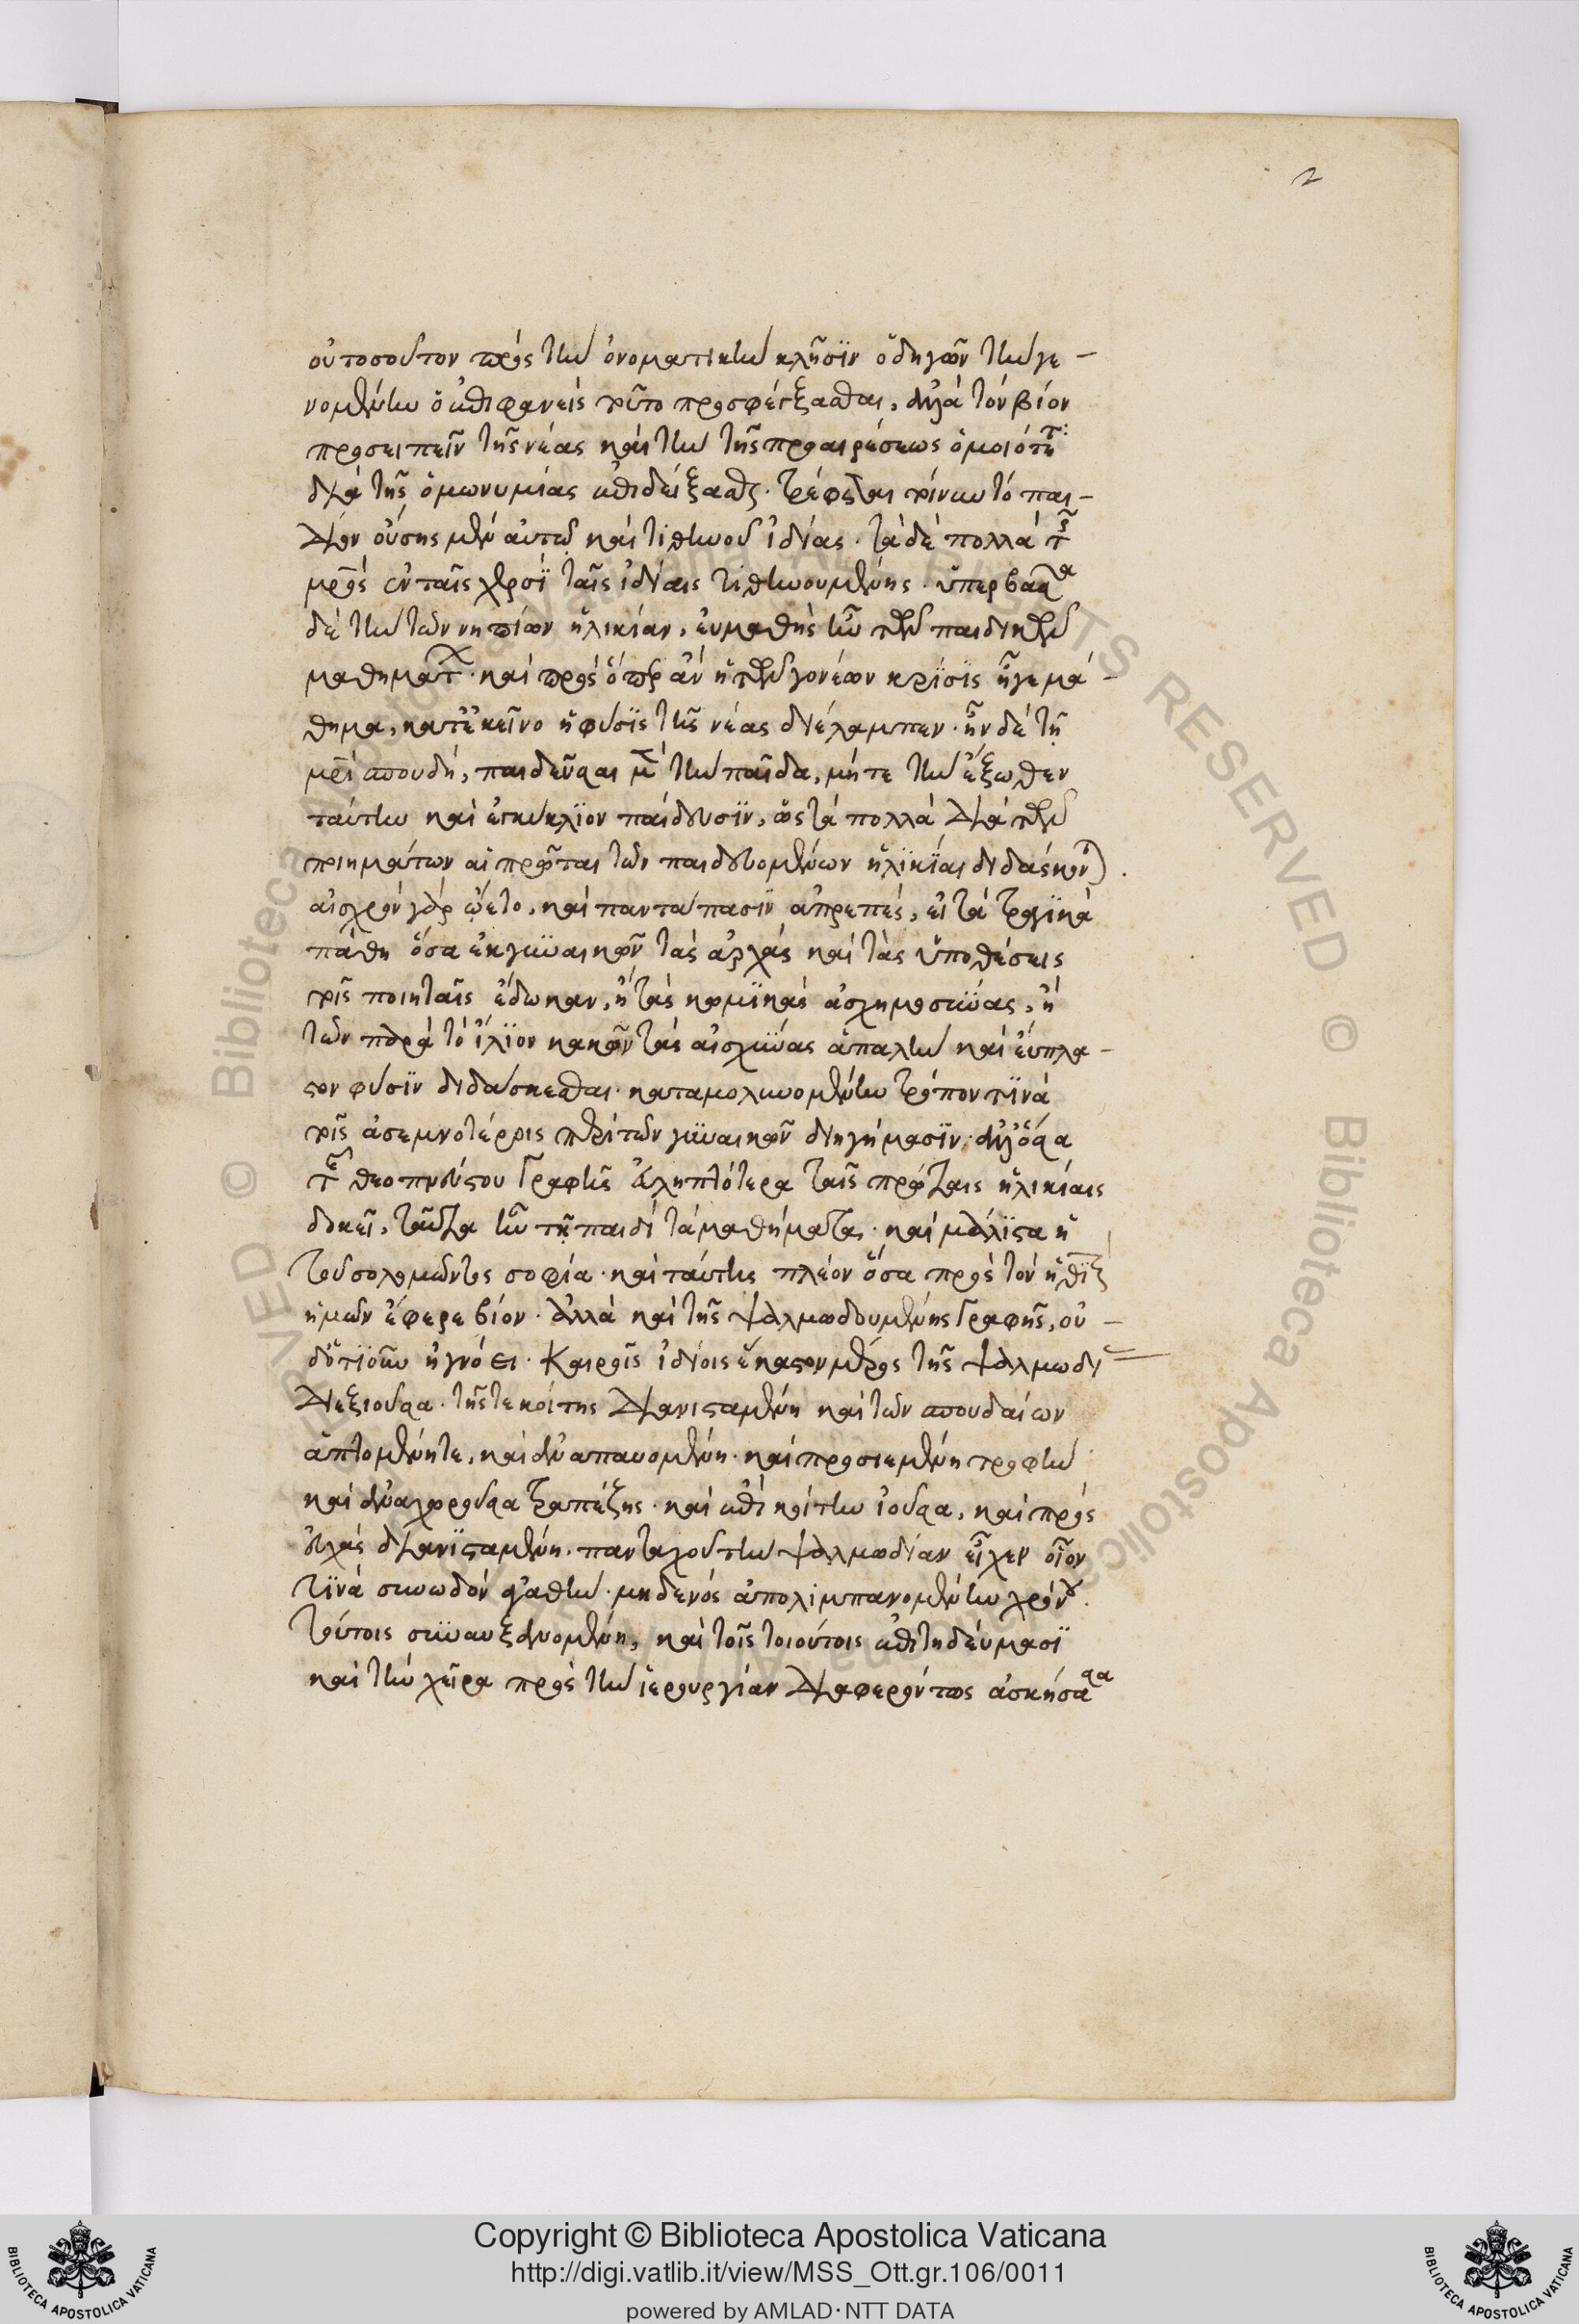 2
οὐ τοσοῦτον πρὸς τὴν ὀνοματικὴν κλῆσϊν ὁδηγῶν τὴν γε-
νομένην ὁ ἐπιφανεὶς τοῦτο προσφθέγξασθαι, ἀλλὰ τὸν βίον
προσειπεῖν τῆς νέας καὶ τὴν τῆς προαιρέσεως ὁμοιότητα
διὰ τῆς ὁμωνυμίας ἐπιδείξασθαι. τρέφεται τοίνυν τὸ παι-
δίον οὔσης μὲν αὐτῷ καὶ τιθηνοῦ ἰδίας. τὰ δὲ πολλὰ τῆς
μρὸς ἐν ταῖς χερσῒ ταῖς ἰδίαις τιθηνουμένης. ὑπερβᾶσα
δὲ τὴν τῶν νηπίων ἡλικίαν, εὐμαθὴς ἦν τῶν παιδικῶν
μαθημάτων. καὶ πρὸς ὅπερ ἂν ἡ τῶν γονέων κρίσϊς ἦγε μά-
θημα, κατ' ἐκεῖνο ἡ φύσϊς τῆς νέας διέλαμπεν. ἦν δὲ τῇ
μρὶ σπουδὴ, παιδεῦσαι μὲν τὴν παῖδα, μή τε τὴν ἔξωθεν
ταύτην καὶ ἐγκύκλϊον παίδευσϊν, ὡς τὰ πολλὰ διὰ τῶν
ποιημάτων αἱ πρῶται τῶν παιδευομένων ἡλϊκΐαι διδάσκονται.
αἰσχρὸν γὰρ ᾤετο, καὶ παντάπασϊν ἀπρεπὲς, εἰ τὰ τραγϊκὰ
πάθη ὅσα ἐκ γυναικῶν τὰς ἀρχὰς καὶ τὰς ὑποθέσεις
τοῖς ποιηταῖς ἔδωκαν, ἢ τὰς κωμϊκὰς ἀσχημοσύνας, ἢ
τῶν παρὰ τὸ ἴλϊον κακῶν τὰς αἰσχύνας ἁπαλὴν καὶ εὔπλα-
στον φύσϊν διδάσκεσθαι. καταμολυνομένην τρόπον τϊνὰ
τοῖς ἀσεμνοτέροις περὶ τῶν γυναικῶν διηγήμασϊν. ἀλλ' ὅσα
τῆς θεοπνεύστου γραφῆς εὐληπτότερα ταῖς πρώταις ἡλικίαις
δοκεῖ, ταῦτα ἦν τῇ παιδὶ τὰ μαθήματα. καὶ μάλϊστα ἡ
τοῦ σολομῶντος σοφία. καὶ ταύτης πλέον ὅσα πρὸς τὸν ἠθϊκὸν
ἡμῶν ἔφερε βίον. ἀλλὰ καὶ τῆς ψαλμωδουμένης γραφῆς, οὐ-
δ' ὁτϊοῦν ἠγνόει. καιροῖς ἰδίοις ἕκαστον μέρος τῆς ψαλμωδί
διεξιοῦσα. τῆς τε κοίτης διανισταμένη καὶ τῶν σπουδαίων
ἁπτομένη τε, καὶ ἀναπαυομένη. καὶ προσιεμένη τροφὴν
καὶ ἀναχωροῦσα τραπέζης. καὶ ἐπὶ κοίτην ἰοῦσα, καὶ πρὸς
εὐχὰς διανϊσταμένη. πανταχοῦ τὴν ψαλμωδίαν εἶχεν οἷον
τϊνὰ συνωδὸν ἀγαθὴν. μηδενὸς ἀπολιμπανομένην χρόνου.
τούτοις συναυξανομένη, καὶ τοῖς τοιούτοις ἐπιτηδεύμασϊ
καὶ τὴν χεῖρα πρὸς τὴν ἱερουργίαν διαφερόντως ἀσκήσασα
© Biblioteca Apostolica Vaticana ALL RIGHTS RESERVED
Copyright © Biblioteca Apostolica Vaticana
http://digi.vatlib.it/view/MSS_Ott.gr.106/0011
powered by AMLAD·NTT DATA
BIBLIOTECA APOSTOLICA VATICANA
BIBLIOTECA APOSTOLICA VATICANA